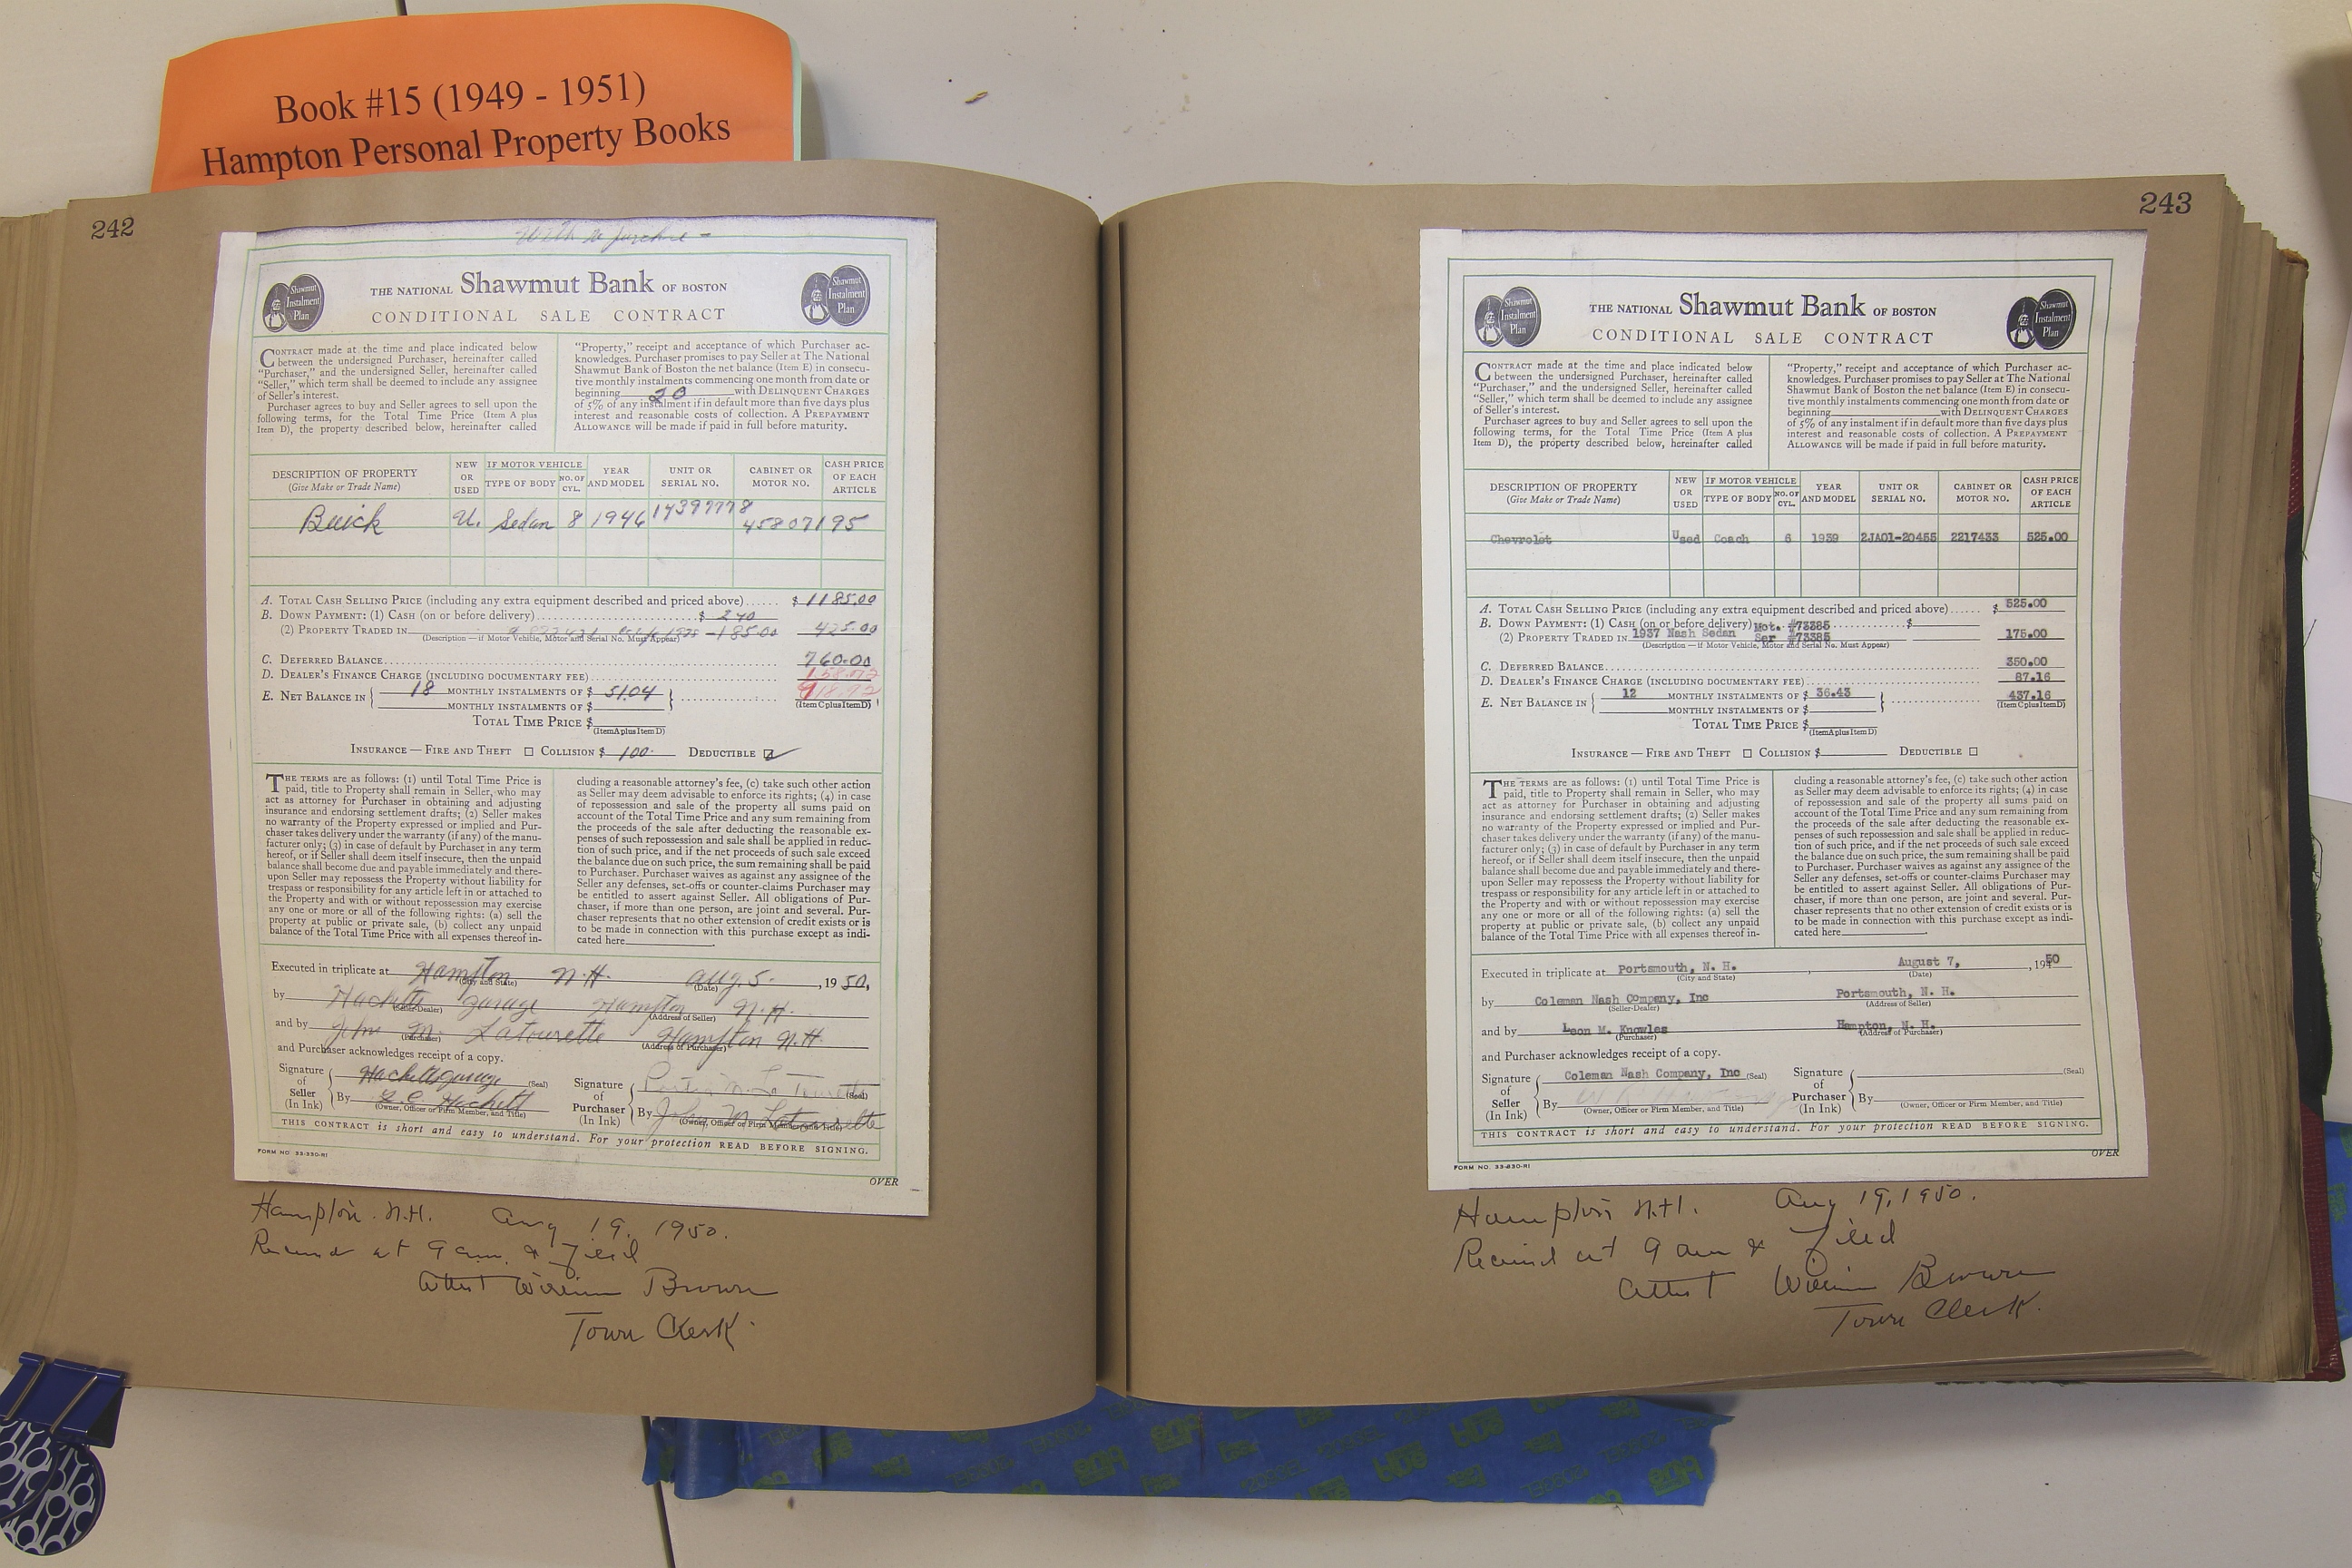 Book #15 (1949 - 1951)
Hampton Personal Property Books
242
With re purchase -
Shawmut
Instalment
Plan
THE NATIONAL Shawmut Bank OF BOSTON
CONDITIONAL SALE CONTRACT
Shawmut
Instalment
Plan
CONTRACT made at the time and place indicated below
between the undersigned Purchaser, hereinafter called
"Purchaser," and the undersigned Seller, hereinafter called
"Seller," which term shall be deemed to include any assignee
of Seller's interest.
Purchaser agrees to buy and Seller agrees to sell upon the
following terms, for the Total Time Price (Item A plus
Item D), the property described below, hereinafter called
"Property," receipt and acceptance of which Purchaser ac-
knowledges. Purchaser promises to pay Seller at The National
Shawmut Bank of Boston the net balance (Item E) in consecu-
tive monthly instalments commencing one month from date or
beginning 20 with DELINQUENT CHARGES
of 5% of any instalment if in default more than five days plus
interest and reasonable costs of collection. A PREPAYMENT
ALLOWANCE will be made if paid in full before maturity.
DESCRIPTION OF PROPERTY
(Give Make or Trade Name)
NEW
OR
USED
IF MOTOR VEHICLE
TYPE OF BODY
NO. OF
CYL.
YEAR
AND MODEL
UNIT OR
SERIAL NO.
CABINET OR
MOTOR NO.
CASH PRICE
OF EACH
ARTICLE
Buick U. Sedan 8 1946 14397778 45807195
A. TOTAL CASH SELLING PRICE (including any extra equipment described and priced above)...... $ 1185.00
B. DOWN PAYMENT: (1) CASH (on or before delivery) $ 240
(2) PROPERTY TRADED IN -185.00 425.00
(Description — if Motor Vehicle, Motor and Serial No. Must Appear)
C. DEFERRED BALANCE 760.00
D. DEALER'S FINANCE CHARGE (INCLUDING DOCUMENTARY FEE) 158.72
E. NET BALANCE IN { 18 MONTHLY INSTALMENTS OF $ 51.04 } 918.72
MONTHLY INSTALMENTS OF $ (Item C plus Item D)
TOTAL TIME PRICE $
(Item A plus Item D)
INSURANCE — FIRE AND THEFT ☐ COLLISION $ 100. DEDUCTIBLE ☑
THE TERMS are as follows: (1) until Total Time Price is
paid, title to Property shall remain in Seller, who may
act as attorney for Purchaser in obtaining and adjusting
insurance and endorsing settlement drafts; (2) Seller makes
no warranty of the Property expressed or implied and Pur-
chaser takes delivery under the warranty (if any) of the manu-
facturer only; (3) in case of default by Purchaser in any term
hereof, or if Seller shall deem itself insecure, then the unpaid
balance shall become due and payable immediately and there-
upon Seller may repossess the Property without liability for
trespass or responsibility for any article left in or attached to
the Property and with or without repossession may exercise
any one or more or all of the following rights: (a) sell the
property at public or private sale, (b) collect any unpaid
balance of the Total Time Price with all expenses thereof in-
cluding a reasonable attorney's fee, (c) take such other action
as Seller may deem advisable to enforce its rights; (4) in case
of repossession and sale of the property all sums paid on
account of the Total Time Price and any sum remaining from
the proceeds of the sale after deducting the reasonable ex-
penses of such repossession and sale shall be applied in reduc-
tion of such price, and if the net proceeds of such sale exceed
the balance due on such price, the sum remaining shall be paid
to Purchaser. Purchaser waives as against any assignee of the
Seller any defenses, set-offs or counter-claims Purchaser may
be entitled to assert against Seller. All obligations of Pur-
chaser, if more than one person, are joint and several. Pur-
chaser represents that no other extension of credit exists or is
to be made in connection with this purchase except as indi-
cated here
Executed in triplicate at Hampton N.H. Aug. 5. , 19 50,
(City and State) (Date)
by Hacketts garage Hampton N.H.
(Seller-Dealer) (Address of Seller)
and by John M. Latourette Hampton N.H.
(Purchaser) (Address of Purchaser)
and Purchaser acknowledges receipt of a copy.
Signature
of
Seller
(In Ink)
Hacketts garage (Seal)
By Hackett
(Owner, Officer or Firm Member, and Title)
Signature
of
Purchaser
(In Ink)
La Tourette (Seal)
By John M Latourette
(Owner, Officer or Firm Member, and Title)
THIS CONTRACT is short and easy to understand. For your protection READ BEFORE SIGNING.
FORM NO. 33-330-RI
OVER
Hampton. N.H. Aug 19, 1950.
Received at 9 am. & filed
Attest William Brown
Town Clerk.
243
Shawmut
Instalment
Plan
THE NATIONAL Shawmut Bank OF BOSTON
CONDITIONAL SALE CONTRACT
Shawmut
Instalment
Plan
CONTRACT made at the time and place indicated below
between the undersigned Purchaser, hereinafter called
"Purchaser," and the undersigned Seller, hereinafter called
"Seller," which term shall be deemed to include any assignee
of Seller's interest.
Purchaser agrees to buy and Seller agrees to sell upon the
following terms, for the Total Time Price (Item A plus
Item D), the property described below, hereinafter called
"Property," receipt and acceptance of which Purchaser ac-
knowledges. Purchaser promises to pay Seller at The National
Shawmut Bank of Boston the net balance (Item E) in consecu-
tive monthly instalments commencing one month from date or
beginning with DELINQUENT CHARGES
of 5% of any instalment if in default more than five days plus
interest and reasonable costs of collection. A PREPAYMENT
ALLOWANCE will be made if paid in full before maturity.
DESCRIPTION OF PROPERTY
(Give Make or Trade Name)
NEW
OR
USED
IF MOTOR VEHICLE
TYPE OF BODY
NO. OF
CYL.
YEAR
AND MODEL
UNIT OR
SERIAL NO.
CABINET OR
MOTOR NO.
CASH PRICE
OF EACH
ARTICLE
Chevrolet Used Coach 6 1939 2JA01-20455 2217433 525.00
A. TOTAL CASH SELLING PRICE (including any extra equipment described and priced above)...... $ 525.00
B. DOWN PAYMENT: (1) CASH (on or before delivery) Mot. #73385 $
(2) PROPERTY TRADED IN 1937 Nash Sedan Ser #73385 175.00
(Description — if Motor Vehicle, Motor and Serial No. Must Appear)
C. DEFERRED BALANCE 350.00
D. DEALER'S FINANCE CHARGE (INCLUDING DOCUMENTARY FEE) 87.16
E. NET BALANCE IN { 12 MONTHLY INSTALMENTS OF $ 36.43 } 437.16
MONTHLY INSTALMENTS OF $ (Item C plus Item D)
TOTAL TIME PRICE $
(Item A plus Item D)
INSURANCE — FIRE AND THEFT ☐ COLLISION $ DEDUCTIBLE ☐
THE TERMS are as follows: (1) until Total Time Price is
paid, title to Property shall remain in Seller, who may
act as attorney for Purchaser in obtaining and adjusting
insurance and endorsing settlement drafts; (2) Seller makes
no warranty of the Property expressed or implied and Pur-
chaser takes delivery under the warranty (if any) of the manu-
facturer only; (3) in case of default by Purchaser in any term
hereof, or if Seller shall deem itself insecure, then the unpaid
balance shall become due and payable immediately and there-
upon Seller may repossess the Property without liability for
trespass or responsibility for any article left in or attached to
the Property and with or without repossession may exercise
any one or more or all of the following rights: (a) sell the
property at public or private sale, (b) collect any unpaid
balance of the Total Time Price with all expenses thereof in-
cluding a reasonable attorney's fee, (c) take such other action
as Seller may deem advisable to enforce its rights; (4) in case
of repossession and sale of the property all sums paid on
account of the Total Time Price and any sum remaining from
the proceeds of the sale after deducting the reasonable ex-
penses of such repossession and sale shall be applied in reduc-
tion of such price, and if the net proceeds of such sale exceed
the balance due on such price, the sum remaining shall be paid
to Purchaser. Purchaser waives as against any assignee of the
Seller any defenses, set-offs or counter-claims Purchaser may
be entitled to assert against Seller. All obligations of Pur-
chaser, if more than one person, are joint and several. Pur-
chaser represents that no other extension of credit exists or is
to be made in connection with this purchase except as indi-
cated here
Executed in triplicate at Portsmouth, N. H. , August 7, , 1950
(City and State) (Date)
by Coleman Nash Company, Inc Portsmouth, N. H.
(Seller-Dealer) (Address of Seller)
and by Leon M. Knowles Hampton, N. H.
(Purchaser) (Address of Purchaser)
and Purchaser acknowledges receipt of a copy.
Signature
of
Seller
(In Ink)
Coleman Nash Company, Inc (Seal)
By
(Owner, Officer or Firm Member, and Title)
Signature
of
Purchaser
(In Ink)
(Seal)
By
(Owner, Officer or Firm Member, and Title)
THIS CONTRACT is short and easy to understand. For your protection READ BEFORE SIGNING.
FORM NO. 33-330-RI
OVER
Hampton N.H. Aug 19, 1950.
Received at 9 am & filed
Attest William Brown
Town Clerk.